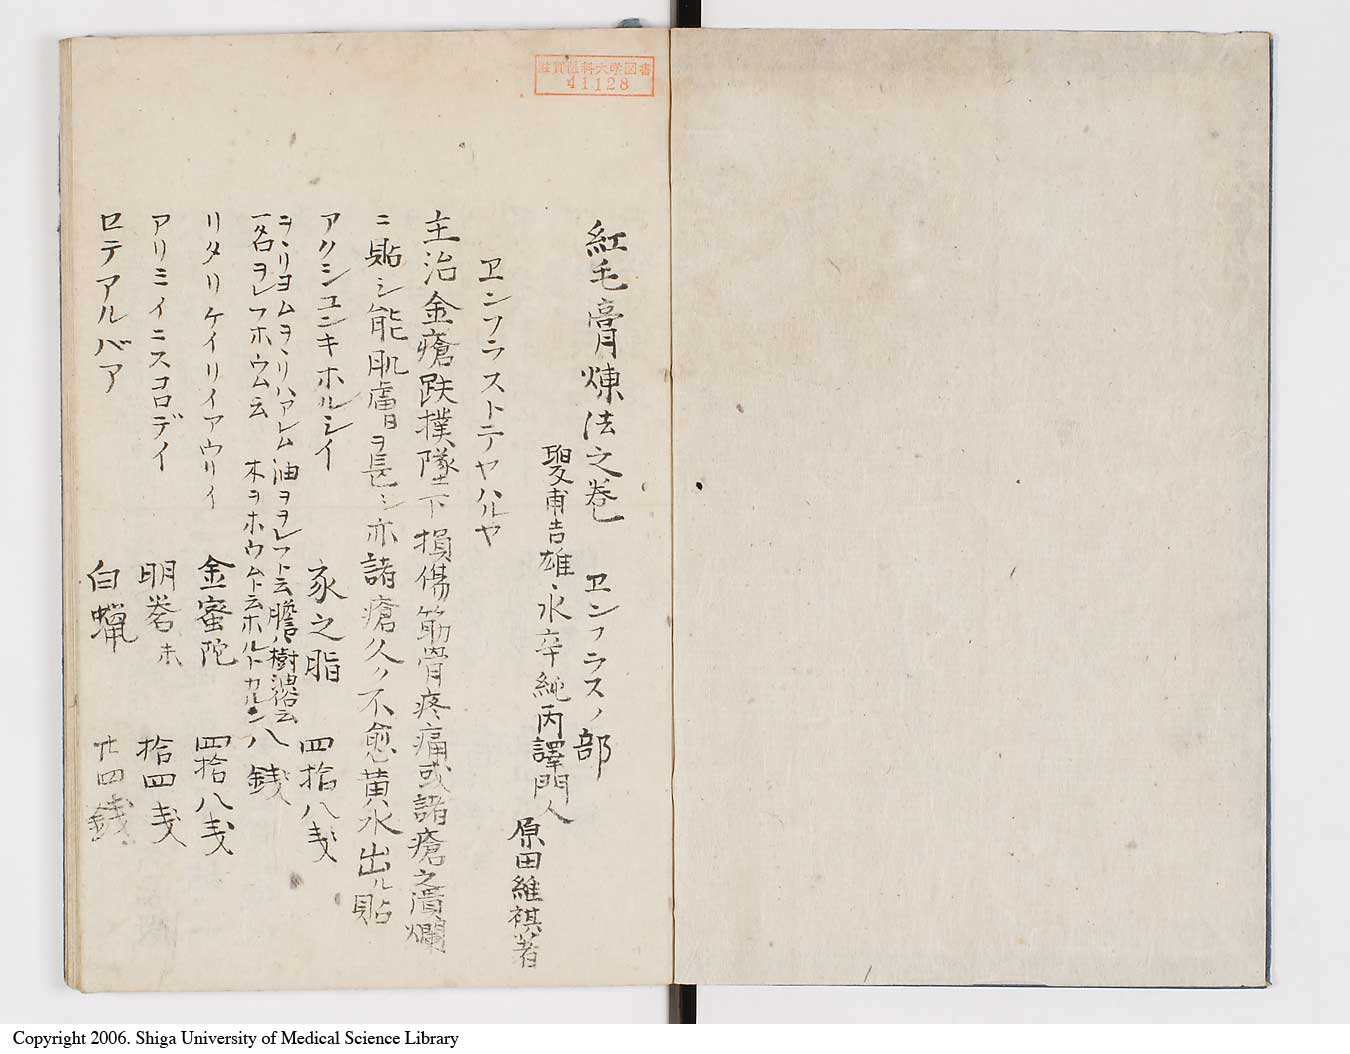 滋賀医科大学図書
41128
紅毛膏煉法之巻 ヱンフラスノ部
聖甫吉雄、永章純丙譯門人
原田維祺著
ヱンフラストテヤハルヤ
主治金瘡跌撲墜下損傷筋骨疼痛或諸瘡之潰爛
ニ貼シ能肌膚ヲ長シ亦諸瘡久ク不愈黄水出ル貼
アクシユンキホルシイ 豕之脂 四拾八戋
ヲヽリヨムヲヽリハアレム 油ヲヲレフト云膽ハ樹油俗云
一名ヲレフホウム云 木ヲホウムト云ホルトカルン 八銭
リタリケイリイアウリイ 金蜜陀 四拾八戋
アリミイニスコロデイ 明礬末 拾四戋
ロテアルバア 白蝋 廿四銭
Copyright 2006. Shiga University of Medical Science Library